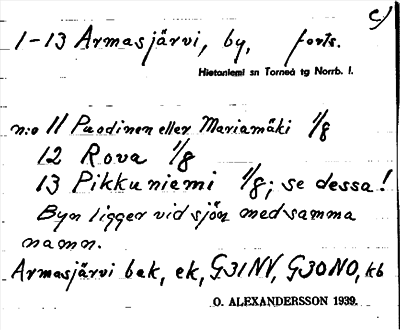 c)
1-13 Armasjärvi, by, forts.
Hietaniemi sn Torneå tg Norrb. l.
n:o 11 Puodinen eller Mariamäki 1/g
12 Rova 1/g
13 Pikkuniemi 1/g; se dessa!
Byn ligger vid sjön med samma
namn.
Armasjärvi bak, ek, G31NV, G30NO, kb
O. ALEXANDERSSON 1939.